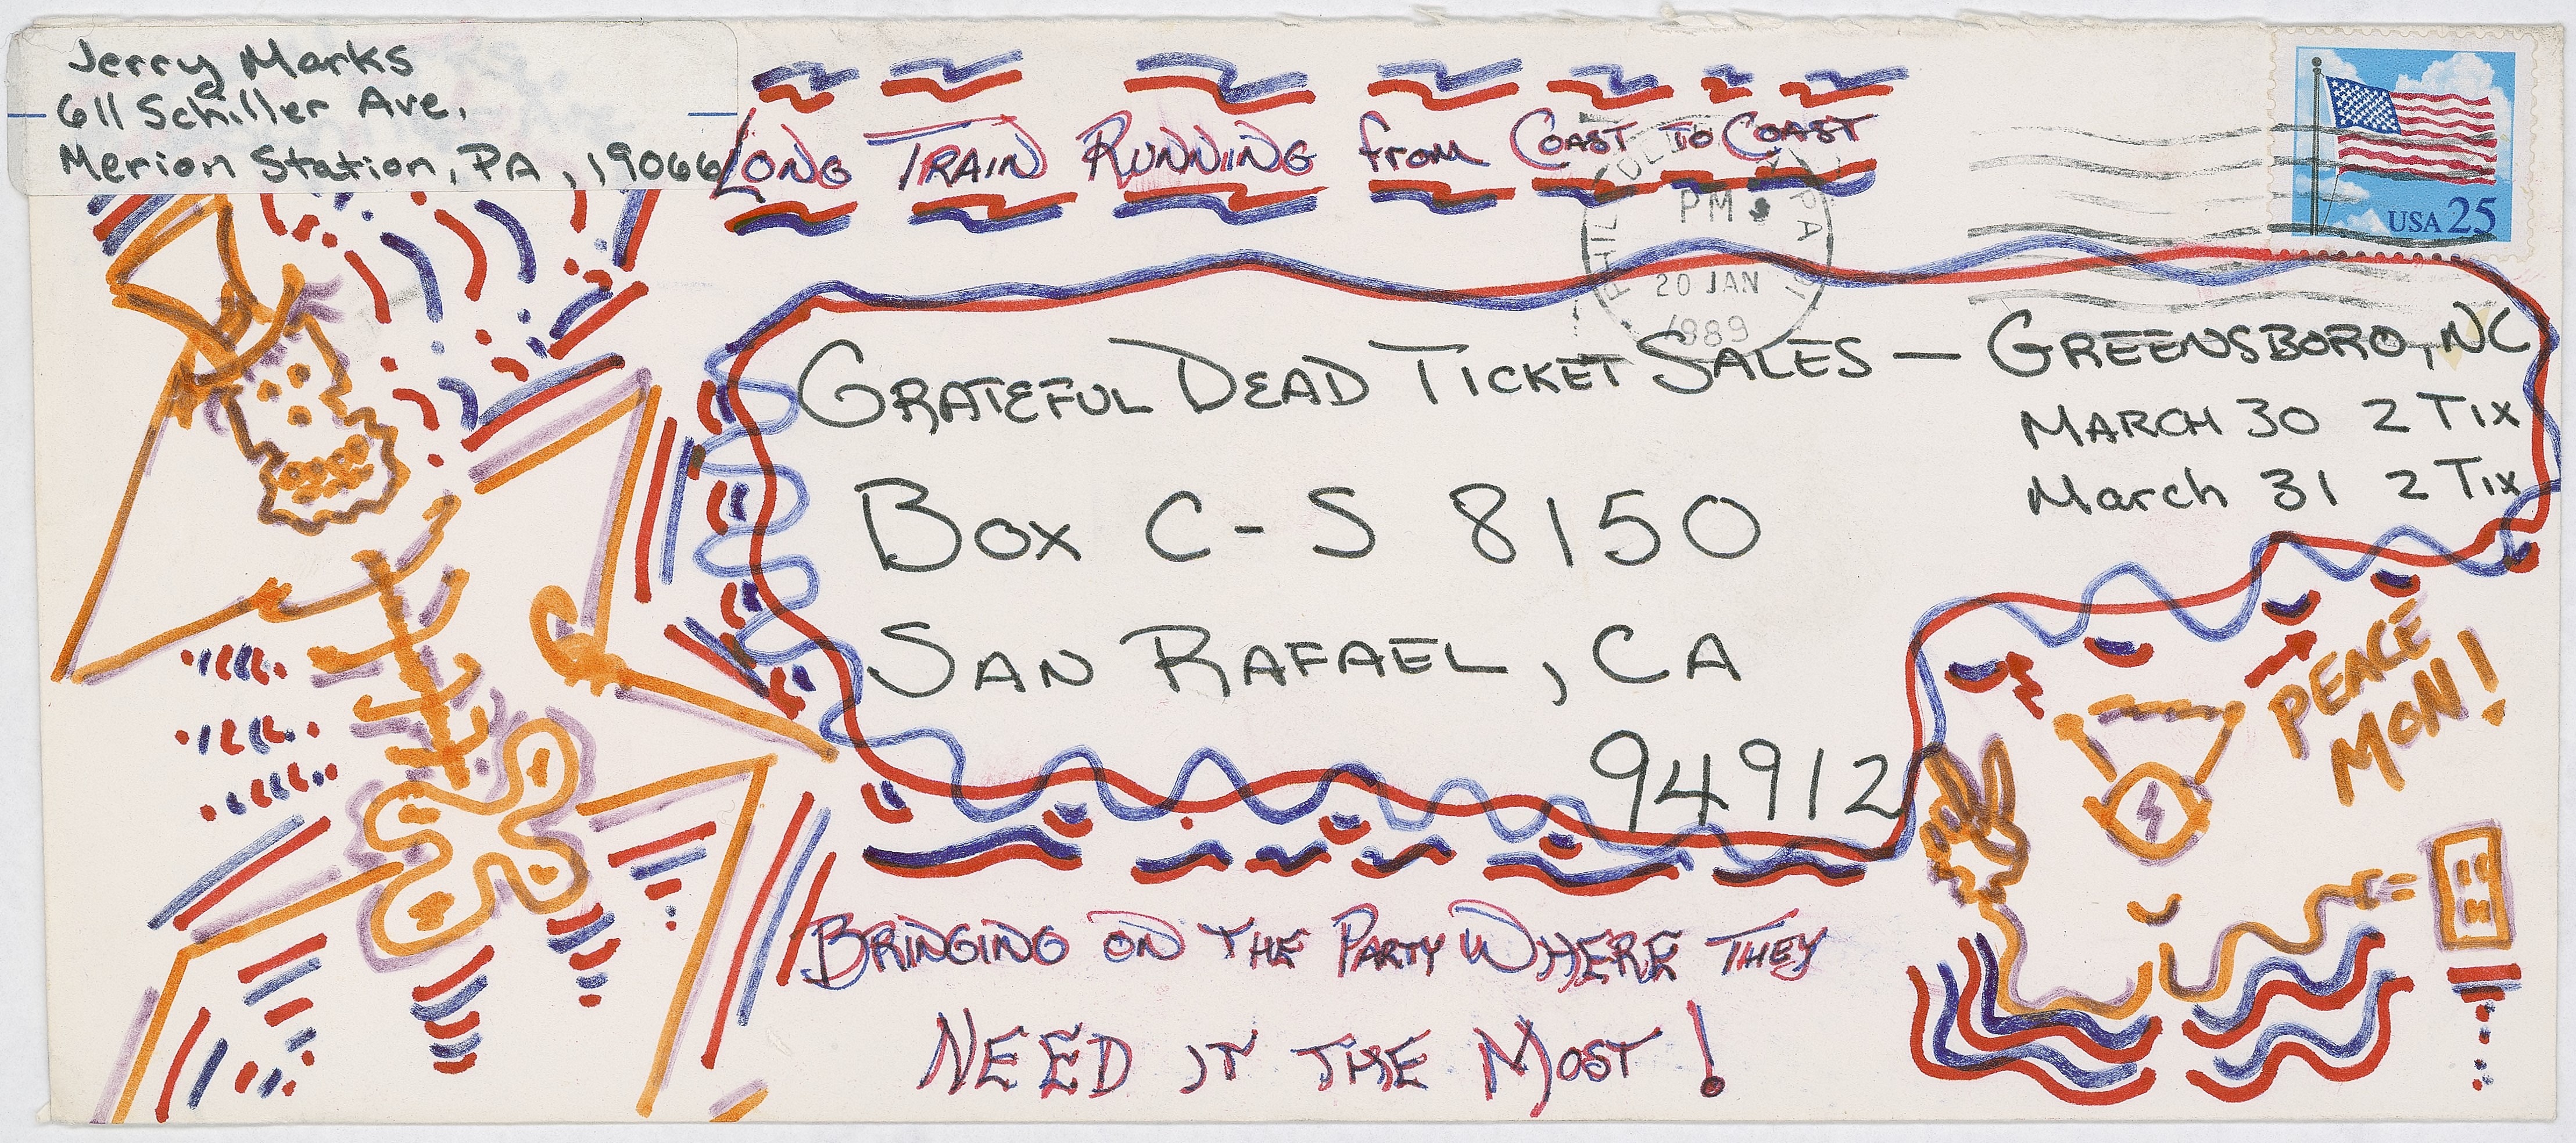 Jerry Marks
611 Schiller Ave.
Merion Station, PA, 19066
LONG TRAIN RUNNING from COAST TO COAST
USA 25
PM
PA
20 JAN
1989
GRATEFUL DEAD TICKET SALES — GREENSBORO, NC
MARCH 30 2 TIX
March 31 2 TIX
BOX C-S 8150
SAN RAFAEL, CA
94912
PEACE
MON!
BRINGING ON THE PARTY WHERE THEY
NEED IT THE MOST!